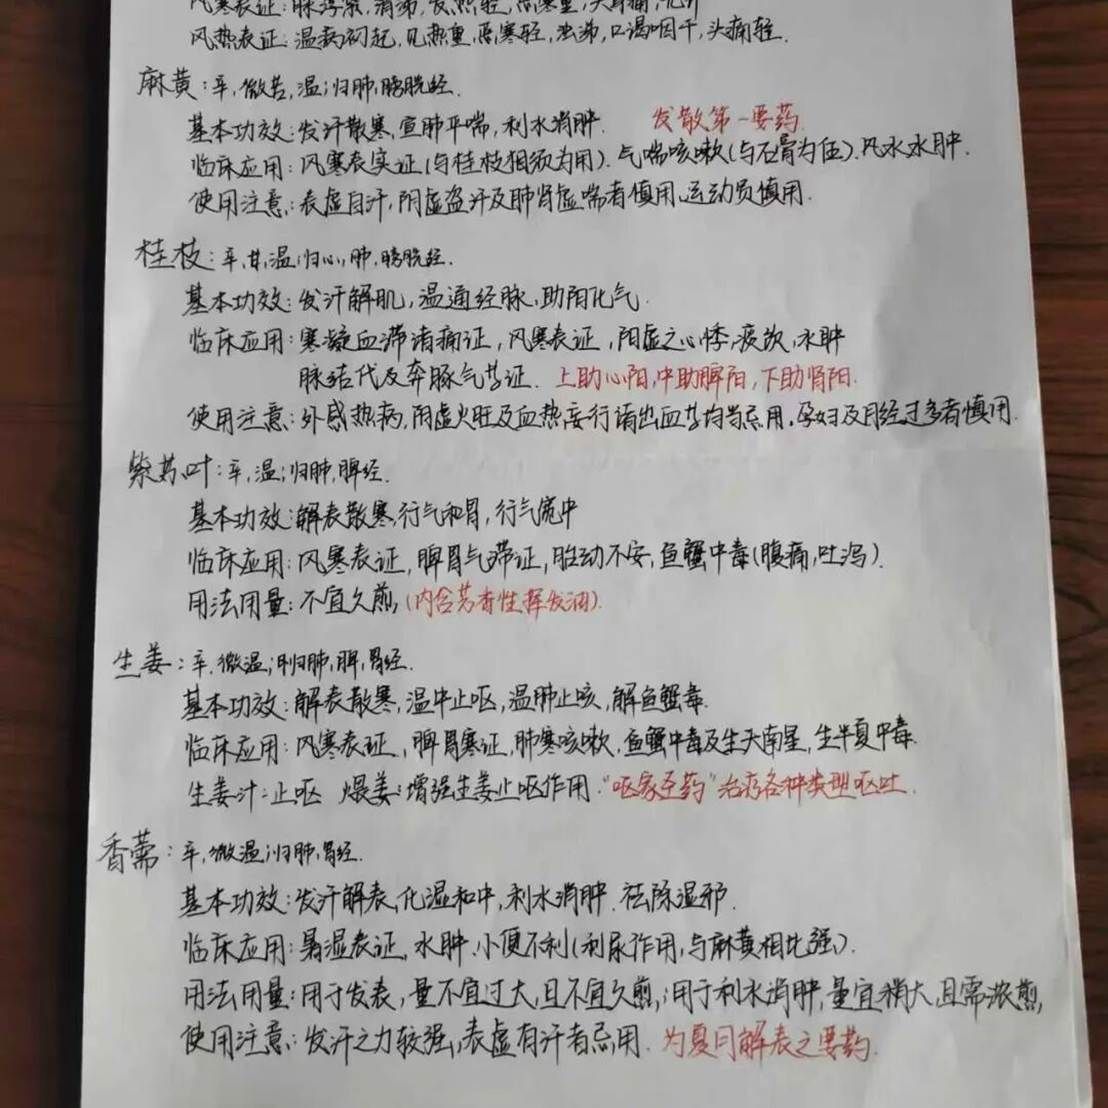 风寒表证：脉浮紧，清涕，发热轻，恶寒重，头身痛，无汗
风热表证：温病初起，见热重，恶寒轻，浊涕，口渴咽干，头痛轻．
麻黄：辛，微苦，温；归肺，膀胱经．
基本功效：发汗散寒，宣肺平喘，利水消肿． 发散第一要药．
临床应用：风寒表实证（与桂枝相须为用）．气喘咳嗽（与石膏为伍）．风水水肿．
使用注意：表虚自汗，阴虚盗汗及肺肾虚喘者慎用．运动员慎用．
桂枝：辛，甘，温；归心，肺，膀胱经．
基本功效：发汗解肌，温通经脉，助阳化气．
临床应用：寒凝血滞诸痛证，风寒表证，阳虚之心悸，痰饮，水肿
脉结代及奔豚气等证． 上助心阳，中助脾阳，下助肾阳．
使用注意：外感热病，阴虚火旺及血热妄行诸出血等均当忌用．孕妇及月经过多者慎用．
紫苏叶：辛，温；归肺，脾经．
基本功效：解表散寒，行气和胃，行气宽中
临床应用：风寒表证，脾胃气滞证，胎动不安，鱼蟹中毒（腹痛，吐泻）．
用法用量：不宜久煎，（内含芳香性挥发油）．
生姜：辛，微温；归肺，脾，胃经．
基本功效：解表散寒，温中止呕，温肺止咳，解鱼蟹毒．
临床应用：风寒表证，脾胃寒证，肺寒咳嗽，鱼蟹中毒及生天南星，生半夏中毒．
生姜汁：止呕 煨姜：增强生姜止呕作用．“呕家圣药”治疗各种类型呕吐．
香薷：辛，微温；归肺，胃经．
基本功效：发汗解表，化湿和中，利水消肿．祛除湿邪．
临床应用：暑湿表证，水肿．小便不利（利尿作用，与麻黄相比强）．
用法用量：用于发表，量不宜过大，且不宜久煎；用于利水消肿，量宜稍大，且需浓煎，
使用注意：发汗之力较强，表虚有汗者忌用．为夏月解表之要药．